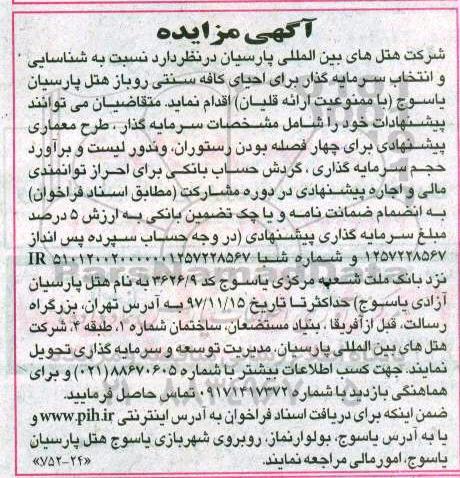 آگهی مزایده
شرکت هتل های بین المللی پارسیان درنظردارد نسبت به شناسایی
و انتخاب سرمایه گذار برای احیای کافه سنتی روباز هتل پارسیان
یاسوج (با ممنوعیت ارائه قلیان) اقدام نماید. متقاضیان می توانند
پیشنهادات خود را شامل مشخصات سرمایه گذار، طرح معماری
پیشنهادی برای چهار فصله بودن رستوران، وندور لیست و برآورد
حجم سرمایه گذاری، گردش حساب بانکی برای احراز توانمندی
مالی و اجاره پیشنهادی در دوره مشارکت (مطابق اسناد فراخوان)
به انضمام ضمانت نامه و یا چک تضمین بانکی به ارزش ۵ درصد
مبلغ سرمایه گذاری پیشنهادی (در وجه حساب سپرده پس انداز
۱۲۵۷۲۲۸۵۶۷ و شماره شبا IR ۵۱۰۱۲۰۰۲۰۰۰۰۰۰۰۱۲۵۷۲۲۸۵۶۷
نزد بانک ملت شعبه مرکزی یاسوج کد ۳۶۲۶/۹ به نام هتل پارسیان
آزادی یاسوج) حداکثر تا تاریخ ۹۷/۱۱/۱۵ به آدرس تهران، بزرگراه
رسالت، قبل از آفریقا، بنیاد مستضعان، ساختمان شماره ۱، طبقه ۴، شرکت
هتل های بین المللی پارسیان، مدیریت توسعه و سرمایه گذاری تحویل
نمایند. جهت کسب اطلاعات بیشتر با شماره ۸۸۶۷۰۶۰۵ (۰۲۱) و برای
هماهنگی بازدید با شماره ۰۹۱۷۷۴۱۷۳۷۲ تماس حاصل فرمایید.
ضمن اینکه برای دریافت اسناد فراخوان به آدرس اینترنتی www.pih.ir و
یا به آدرس یاسوج، بولوارنماز، روبروی شهربازی یاسوج هتل پارسیان
یاسوج، امور مالی مراجعه نمایند.
«۷۵۲-۲۴»